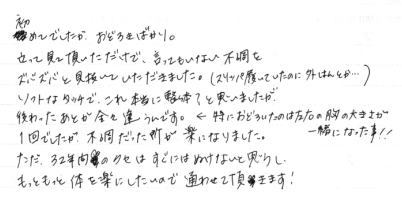 初めてでしたが、おどろきばかり。
立って見て頂いただけで、言ってもいない不調を
ズバズバと見抜いていただきました。(スリッパ履いていたのに外はんとか…)
ソフトなタッチで、これ本当に整体?と思いましたが、
終わったあとが全然違うんです。←特におどろいたのは左右の胸の大きさが
一緒になった事!!
1回でしたが、不調だった所が楽になりました。
ただ、32年間のクセはすぐにはぬけないと思うし、
もっともっと体を楽にしたいので通わせて頂きます!